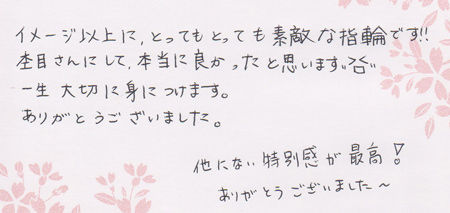 イメージ以上に、とってもとっても素敵な指輪です!!
杢目さんにして、本当に良かったと思います
一生大切に身につけます。
ありがとうございました。
他にない特別感が最高！
ありがとうございました〜